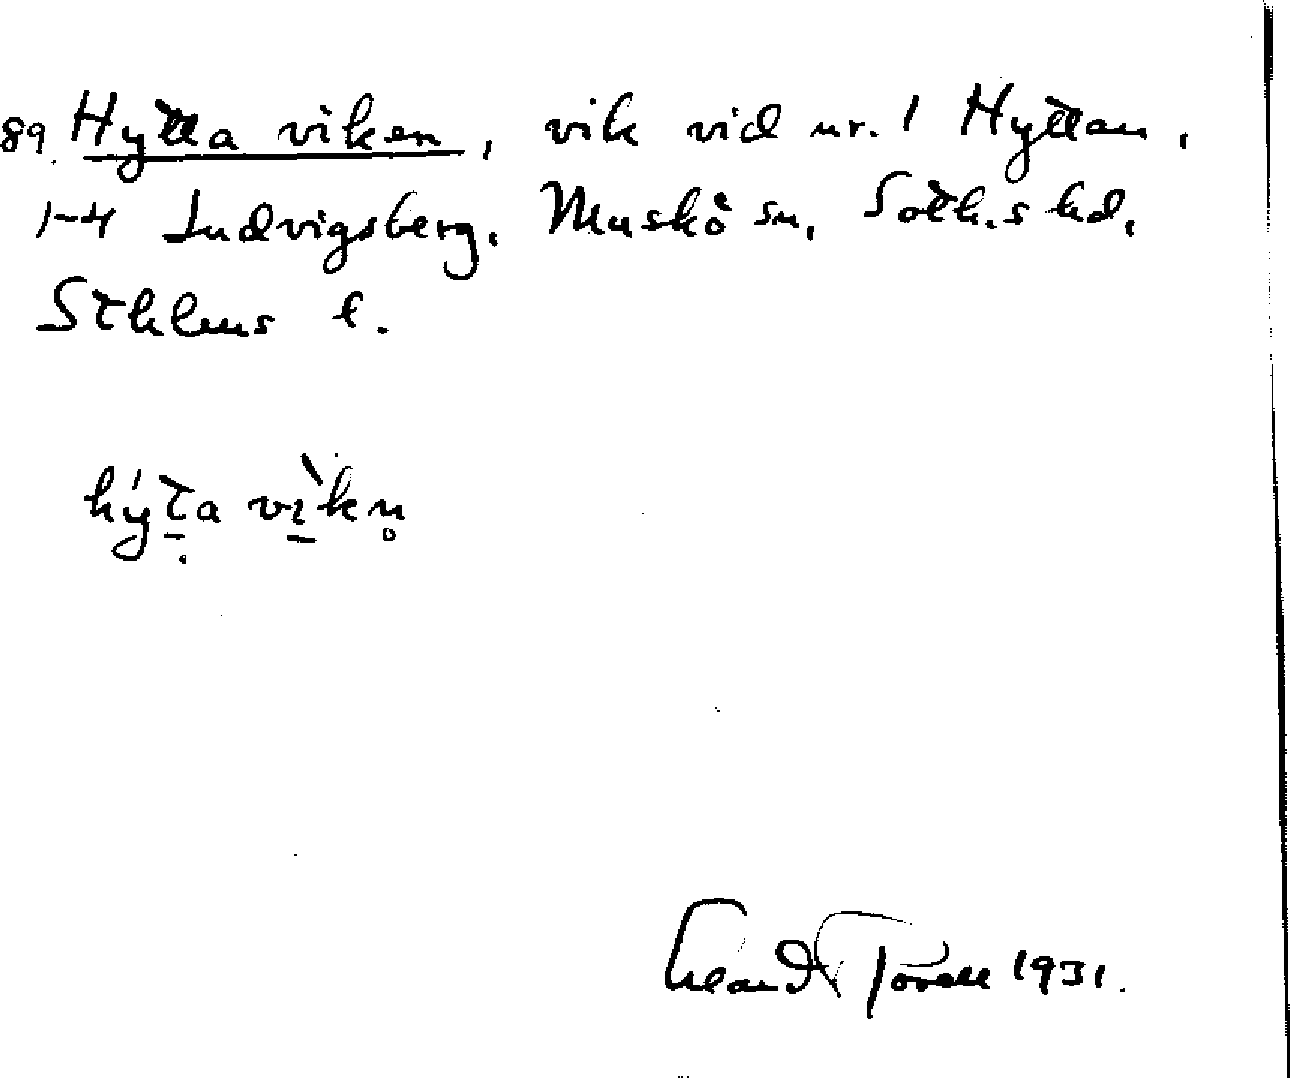 89. Hytta viken, vik vid nr. 1 Hyttan,
1-4 Ludvigsberg, Muskö sn, Soth.s hd,
Sthlms l.
hýta vìkn̥
Torell 1931.